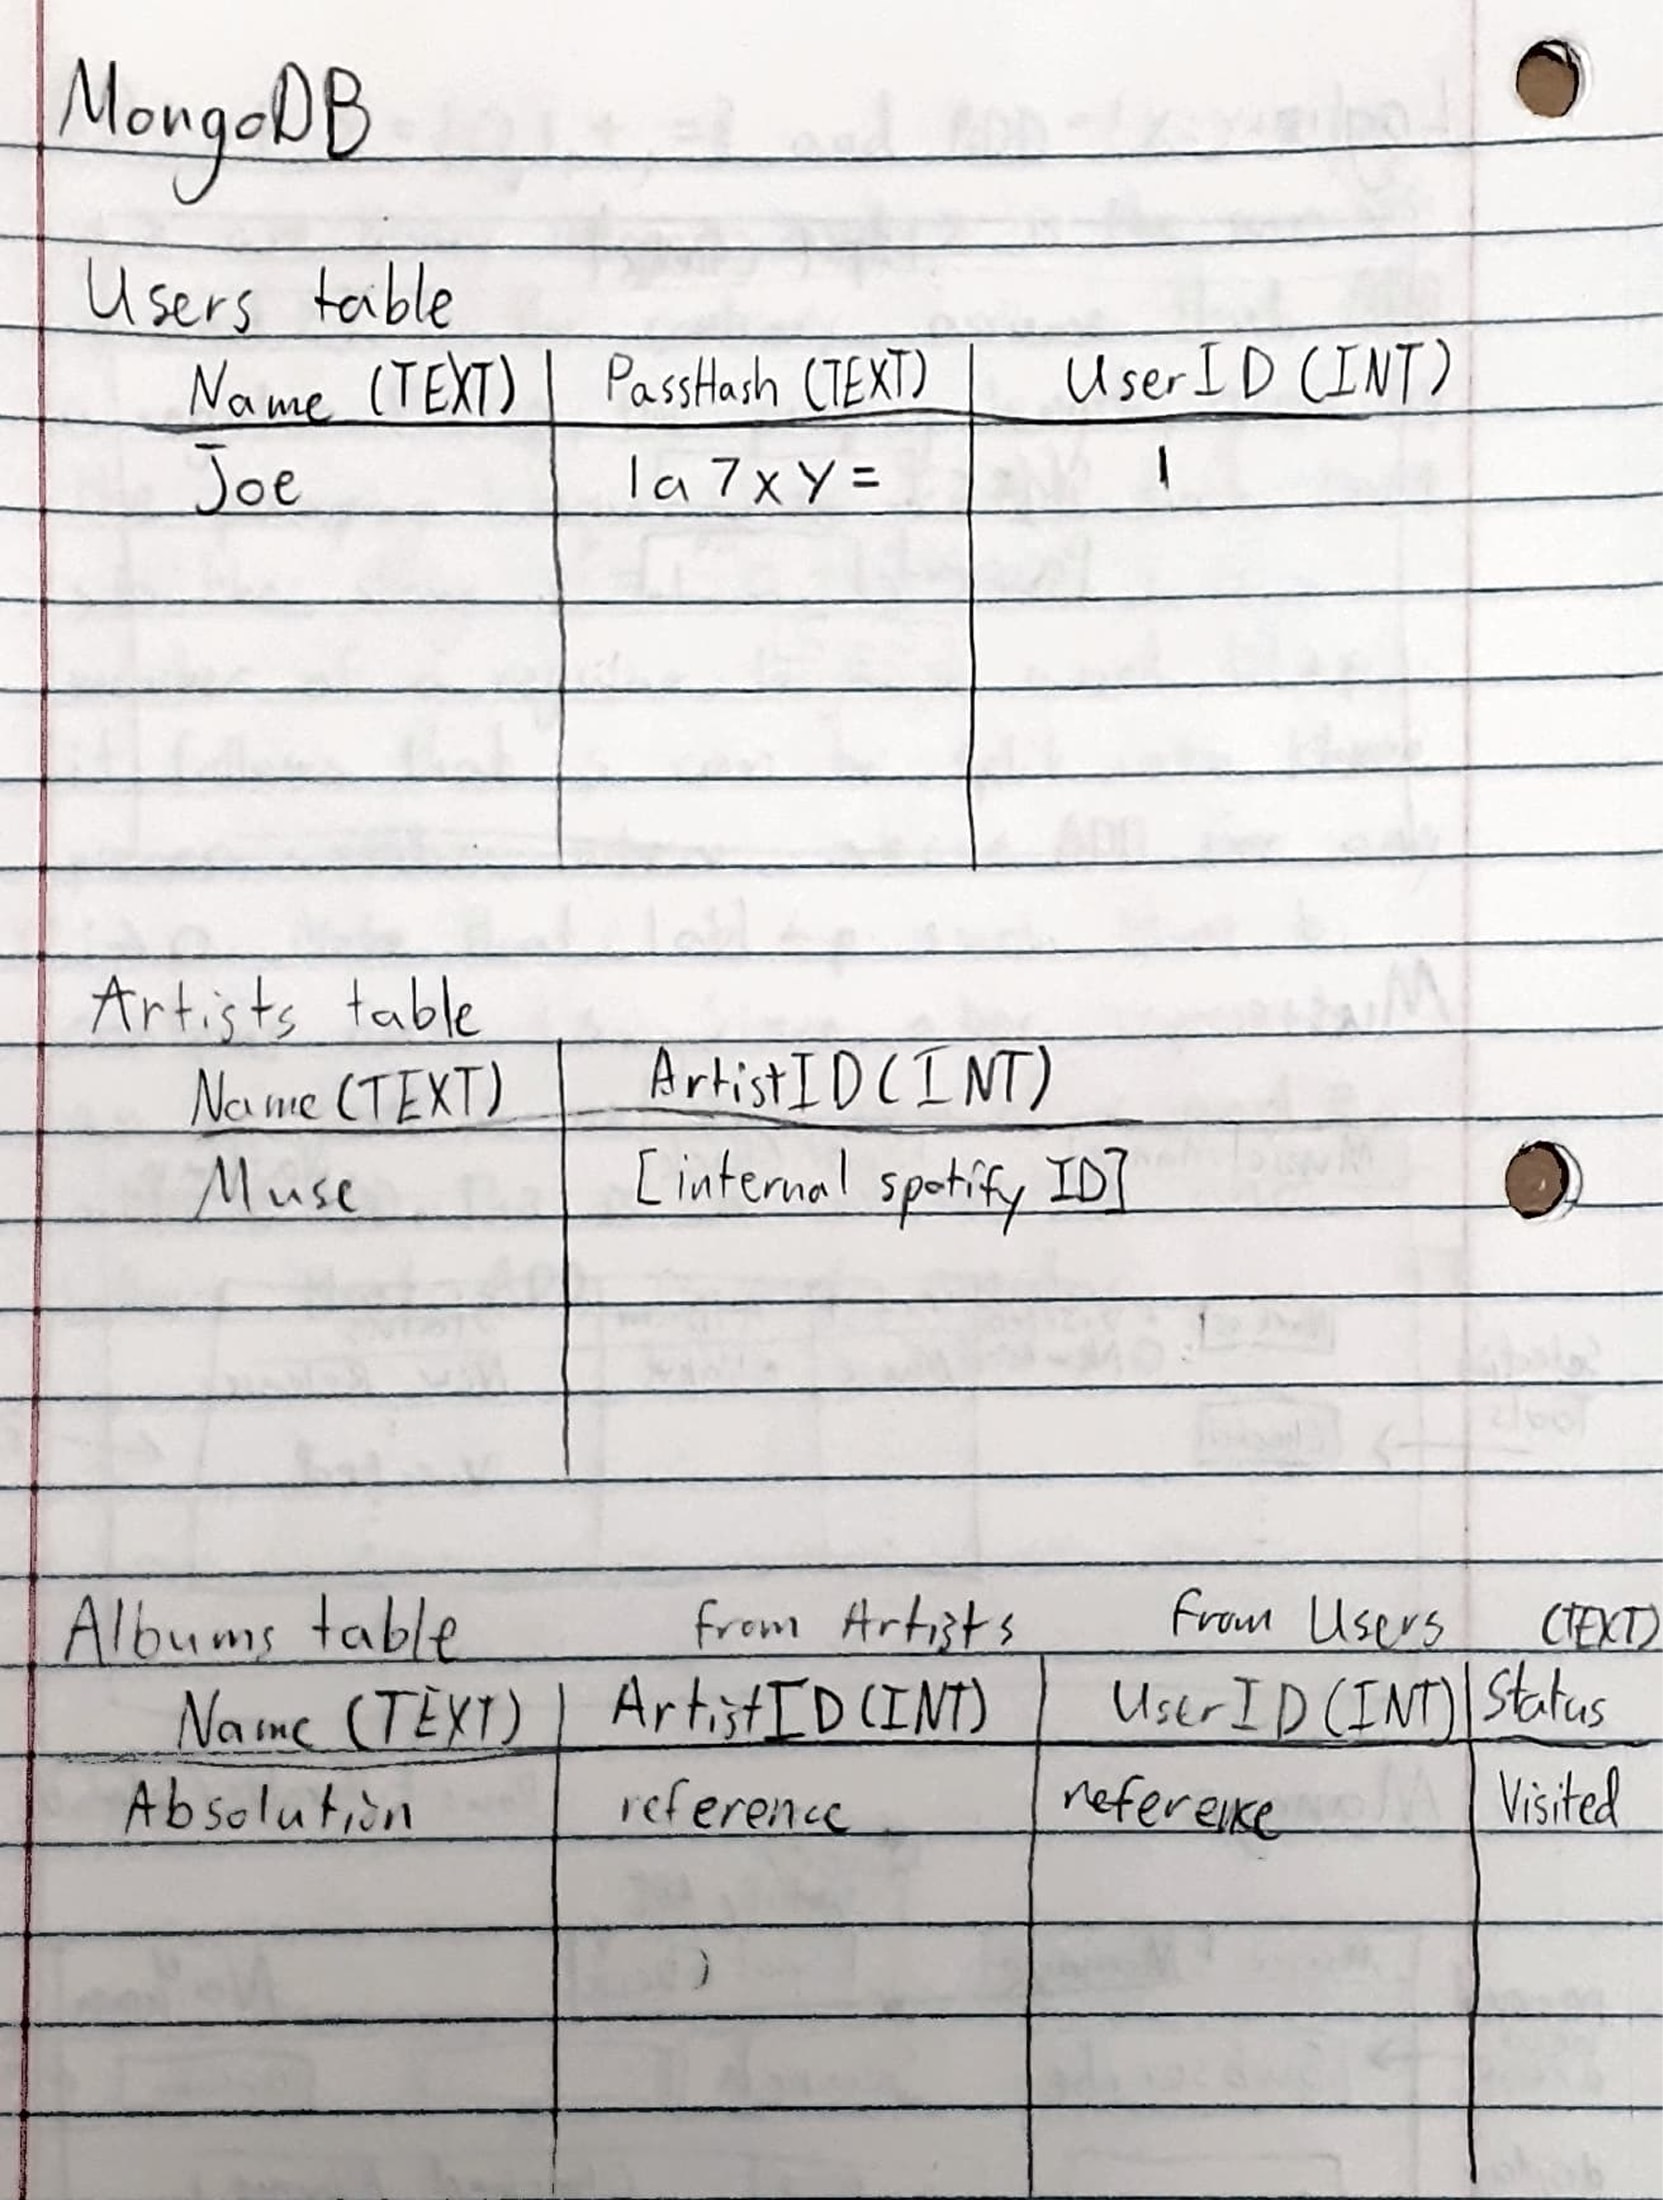 MongoDB
Users table
Name (TEXT) PassHash (TEXT) UserID (INT)
Joe 1a7xy= 1
Artists table
Name (TEXT) ArtistID (INT)
Muse [internal spotify ID]
Albums table from Artists from Users (TEXT)
Name (TEXT) ArtistID (INT) UserID (INT) Status
Absolution reference reference Visited